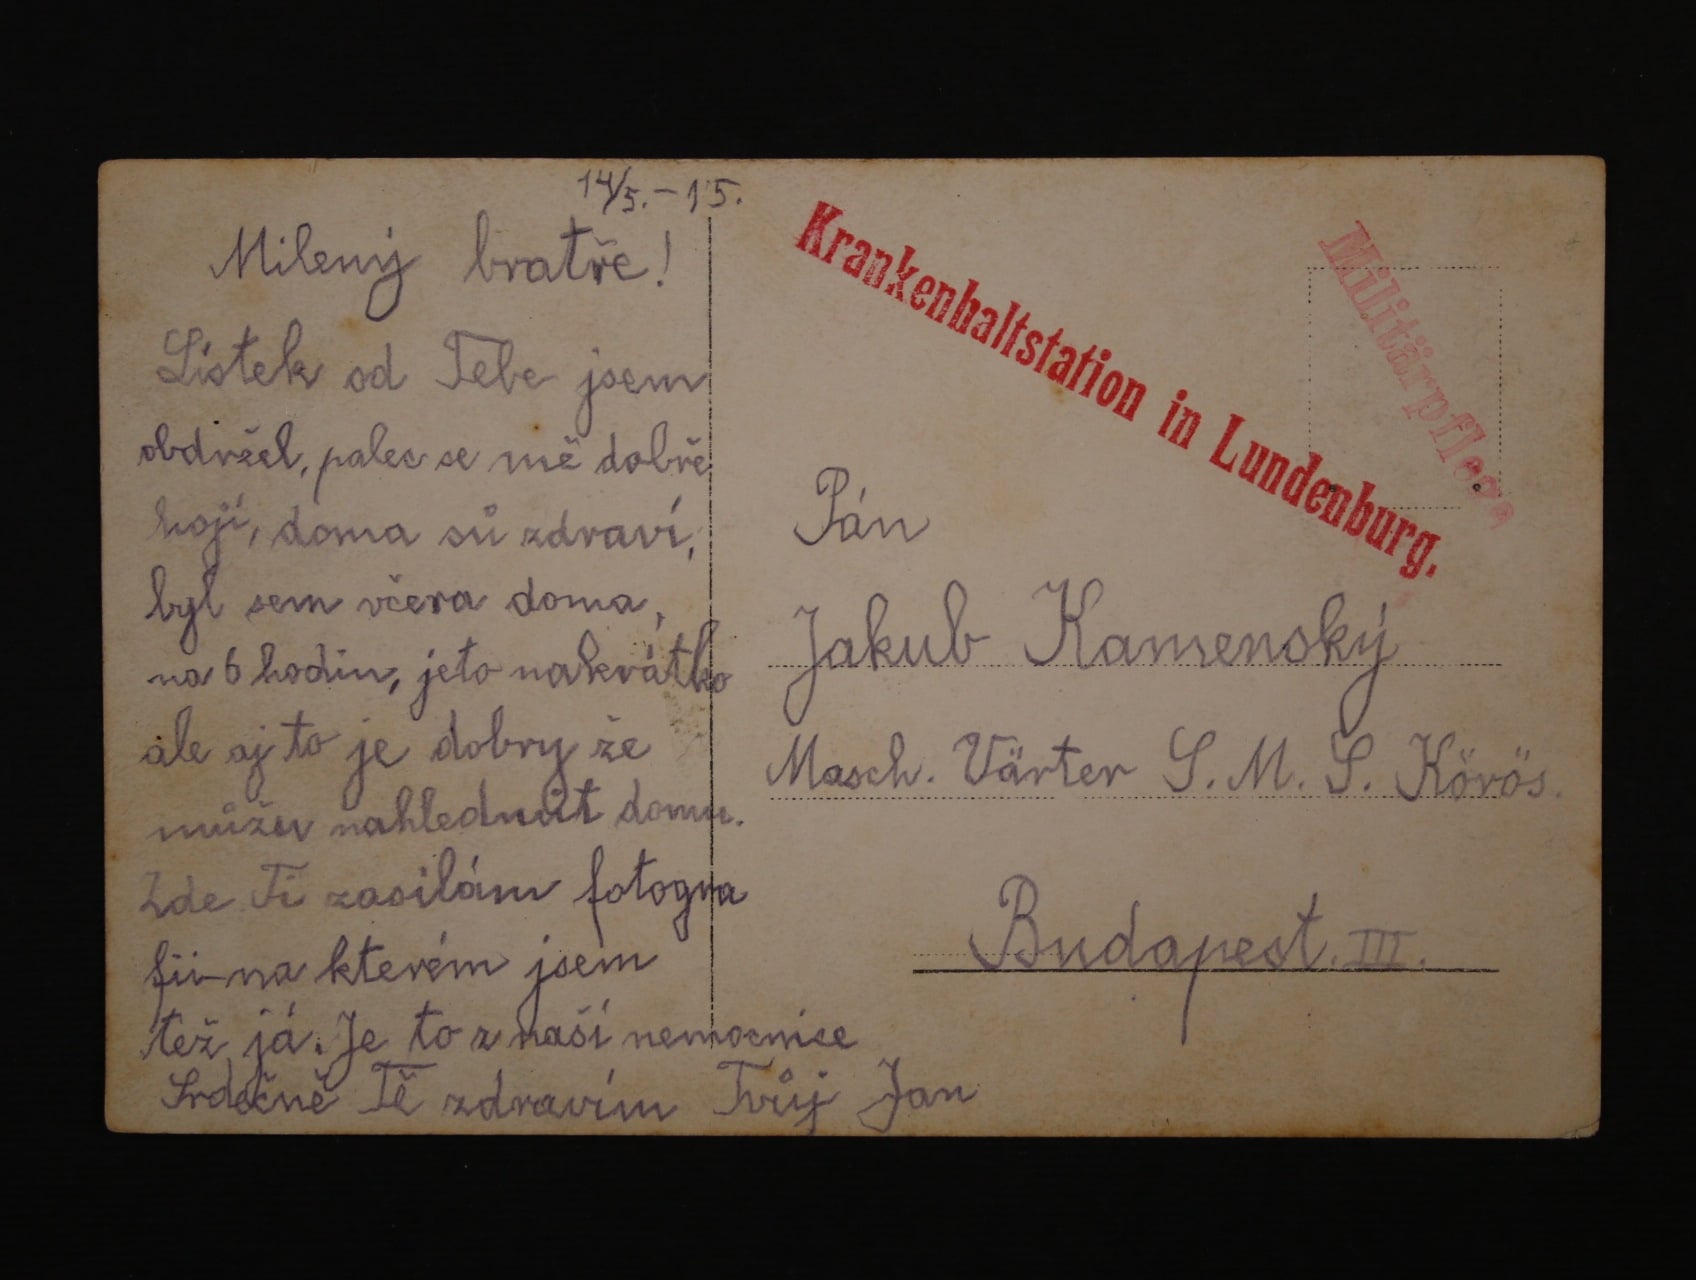 14/5. – 15.
Milený bratře!
Lístek od Tebe jsem
obdržel, palec se mě dobře
hojí, doma sů zdraví,
byl sem včera doma,
na 6 hodin, jeto nakrátko
ale aj to je dobry že
můžu nahlednůt domu.
Zde Ti zasilám fotogra
fii na kterém jsem
též já. Je to z naší nemocnice
Srdečně Tě zdravím Tvůj Jan
Krankenhaltstation in Lundenburg.
Militärpflege
Pán
Jakub Kamenský
Masch. Värter S. M. S. Körös.
Budapest. III.